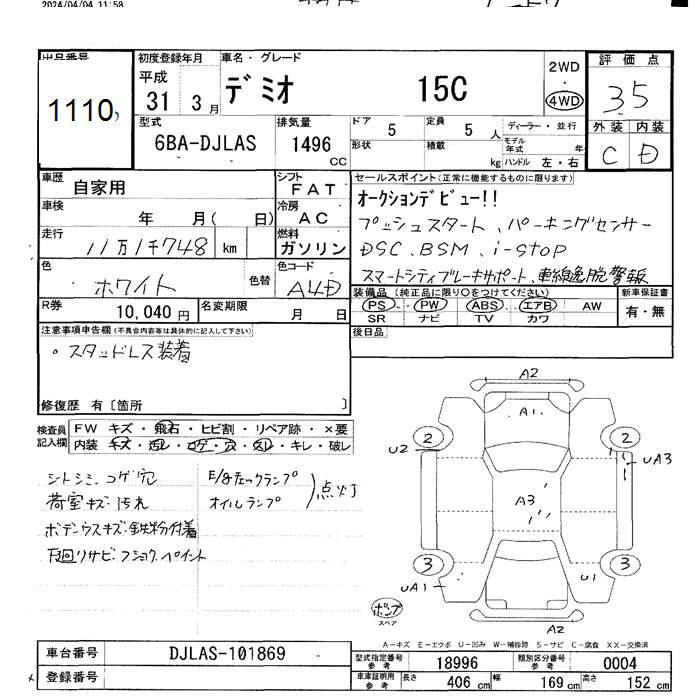 2024/04/04 11:58
出品番号
1110
初度登録年月
平成
31 3月
車名・グレード
デミオ 15C
2WD
・
4WD
評価点
3.5
型式
6BA-DJLAS
排気量
1496
CC
ドア 5
形状
定員 5 人
積載 kg
ディーラー・並行
モデル年式 年
ハンドル 左・右
外装 内装
C D
車歴 自家用
シフト FAT
車検 年 月( 日)
冷房 AC
走行 11万1千748 km
燃料 ガソリン
色 ホワイト 色替
色コード A4D
R券 10,040円
名変期限 月 日
セールスポイント(正常に機能するものに限ります)
オークションデビュー!!
プッシュスタート、パーキングセンサー
DSC、BSM、i-stop
スマートシティブレーキサポート、車線逸脱警報
装備品(純正品に限り○をつけてください)
新車保証書
PS PW ABS エアB AW
SR ナビ TV カワ
有・無
後日品
注意事項申告欄(不具合内容等は具体的に記入して下さい)
・スタッドレス装着
修復歴 有〔箇所 〕
検査員記入欄
FW キズ・飛石・ヒビ割・リペア跡・×要
内装 キズ・汚レ・コゲ・穴・スレ・キレ・破レ
シトシミ、コゲ穴
荷室キズ・汚れ
ボデーウスキズ・鉄粉付着
下回りサビ・フショク、ペイント
E/gチェックランプ
オイルランプ
点灯
A2
A1
2 2
U2
UA3
A3
3 3
UA1
U1
A2
ポンプ
スペア
A-キズ E-エクボ U-凹み W-補修跡 S-サビ C-腐食 XX-交換済
車台番号 DJLAS-101869
登録番号
型式指定番号 参考 18996
類別区分番号 参考 0004
車庫証明用 参考 長さ 406 cm 幅 169 cm 高さ 152 cm